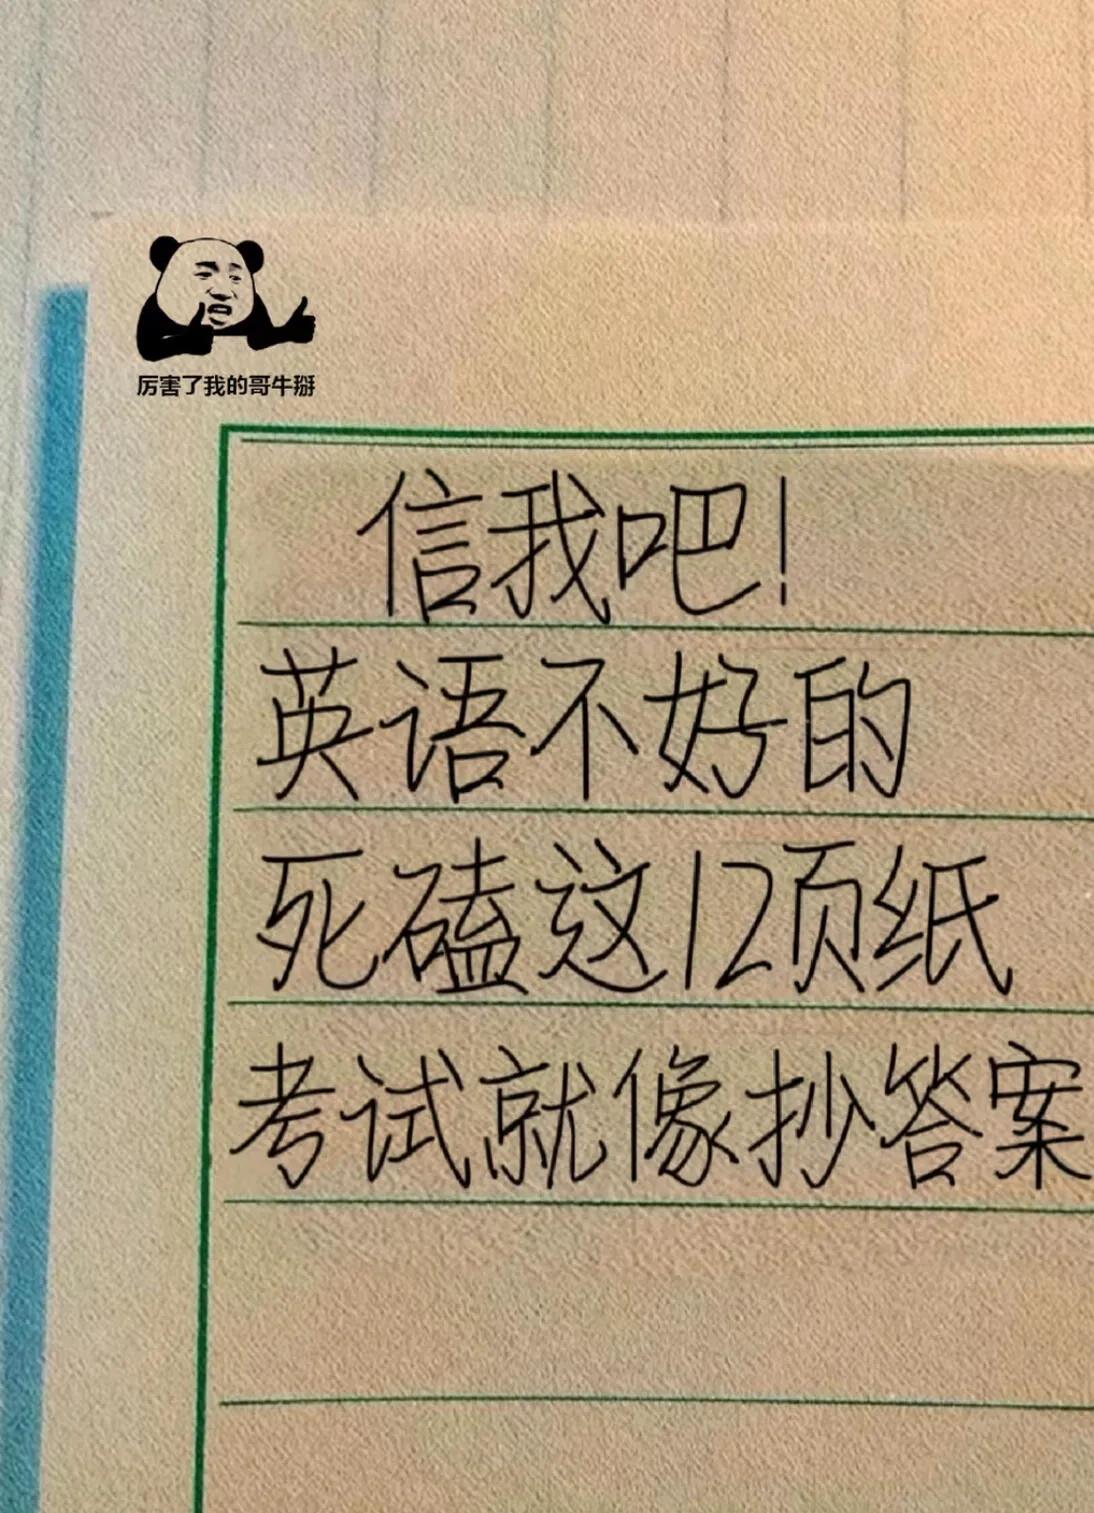 厉害了我的哥牛掰
信我吧！
英语不好的
死磕这12页纸
考试就像抄答案